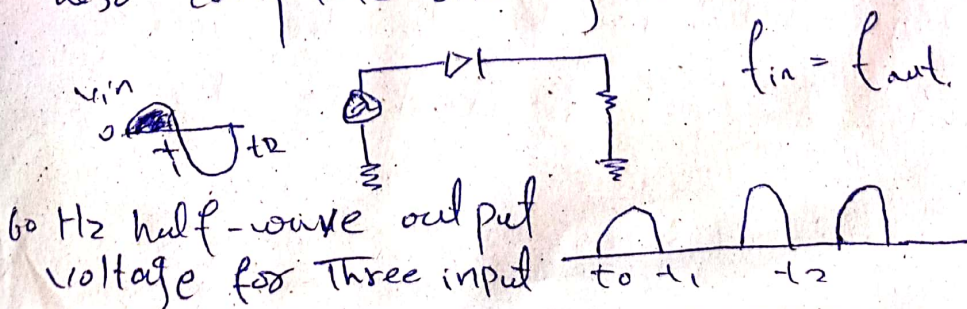 fin = fout.
Vin
0
t t2
60 Hz half-wave output
voltage for Three input
to t1 t2